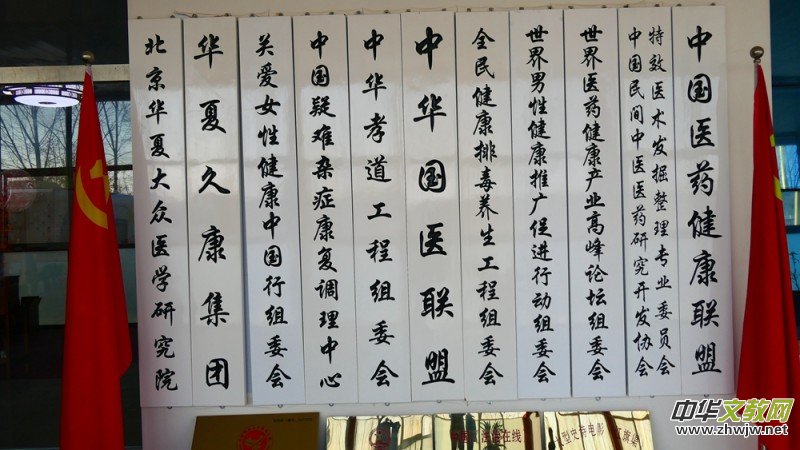 北京华夏大众医学研究院
华夏久康集团
关爱女性健康中国行组委会
中国疑难杂症康复调理中心
中华孝道工程组委会
中华国医联盟
全民健康排毒养生工程组委会
世界男性健康推广促进行动组委会
世界医药健康产业高峰论坛组委会
中国民间中医医药研究开发协会
特效医术发掘整理专业委员会
中国医药健康联盟
在线
型史诗电影
中华文教网
www.zhwjw.net